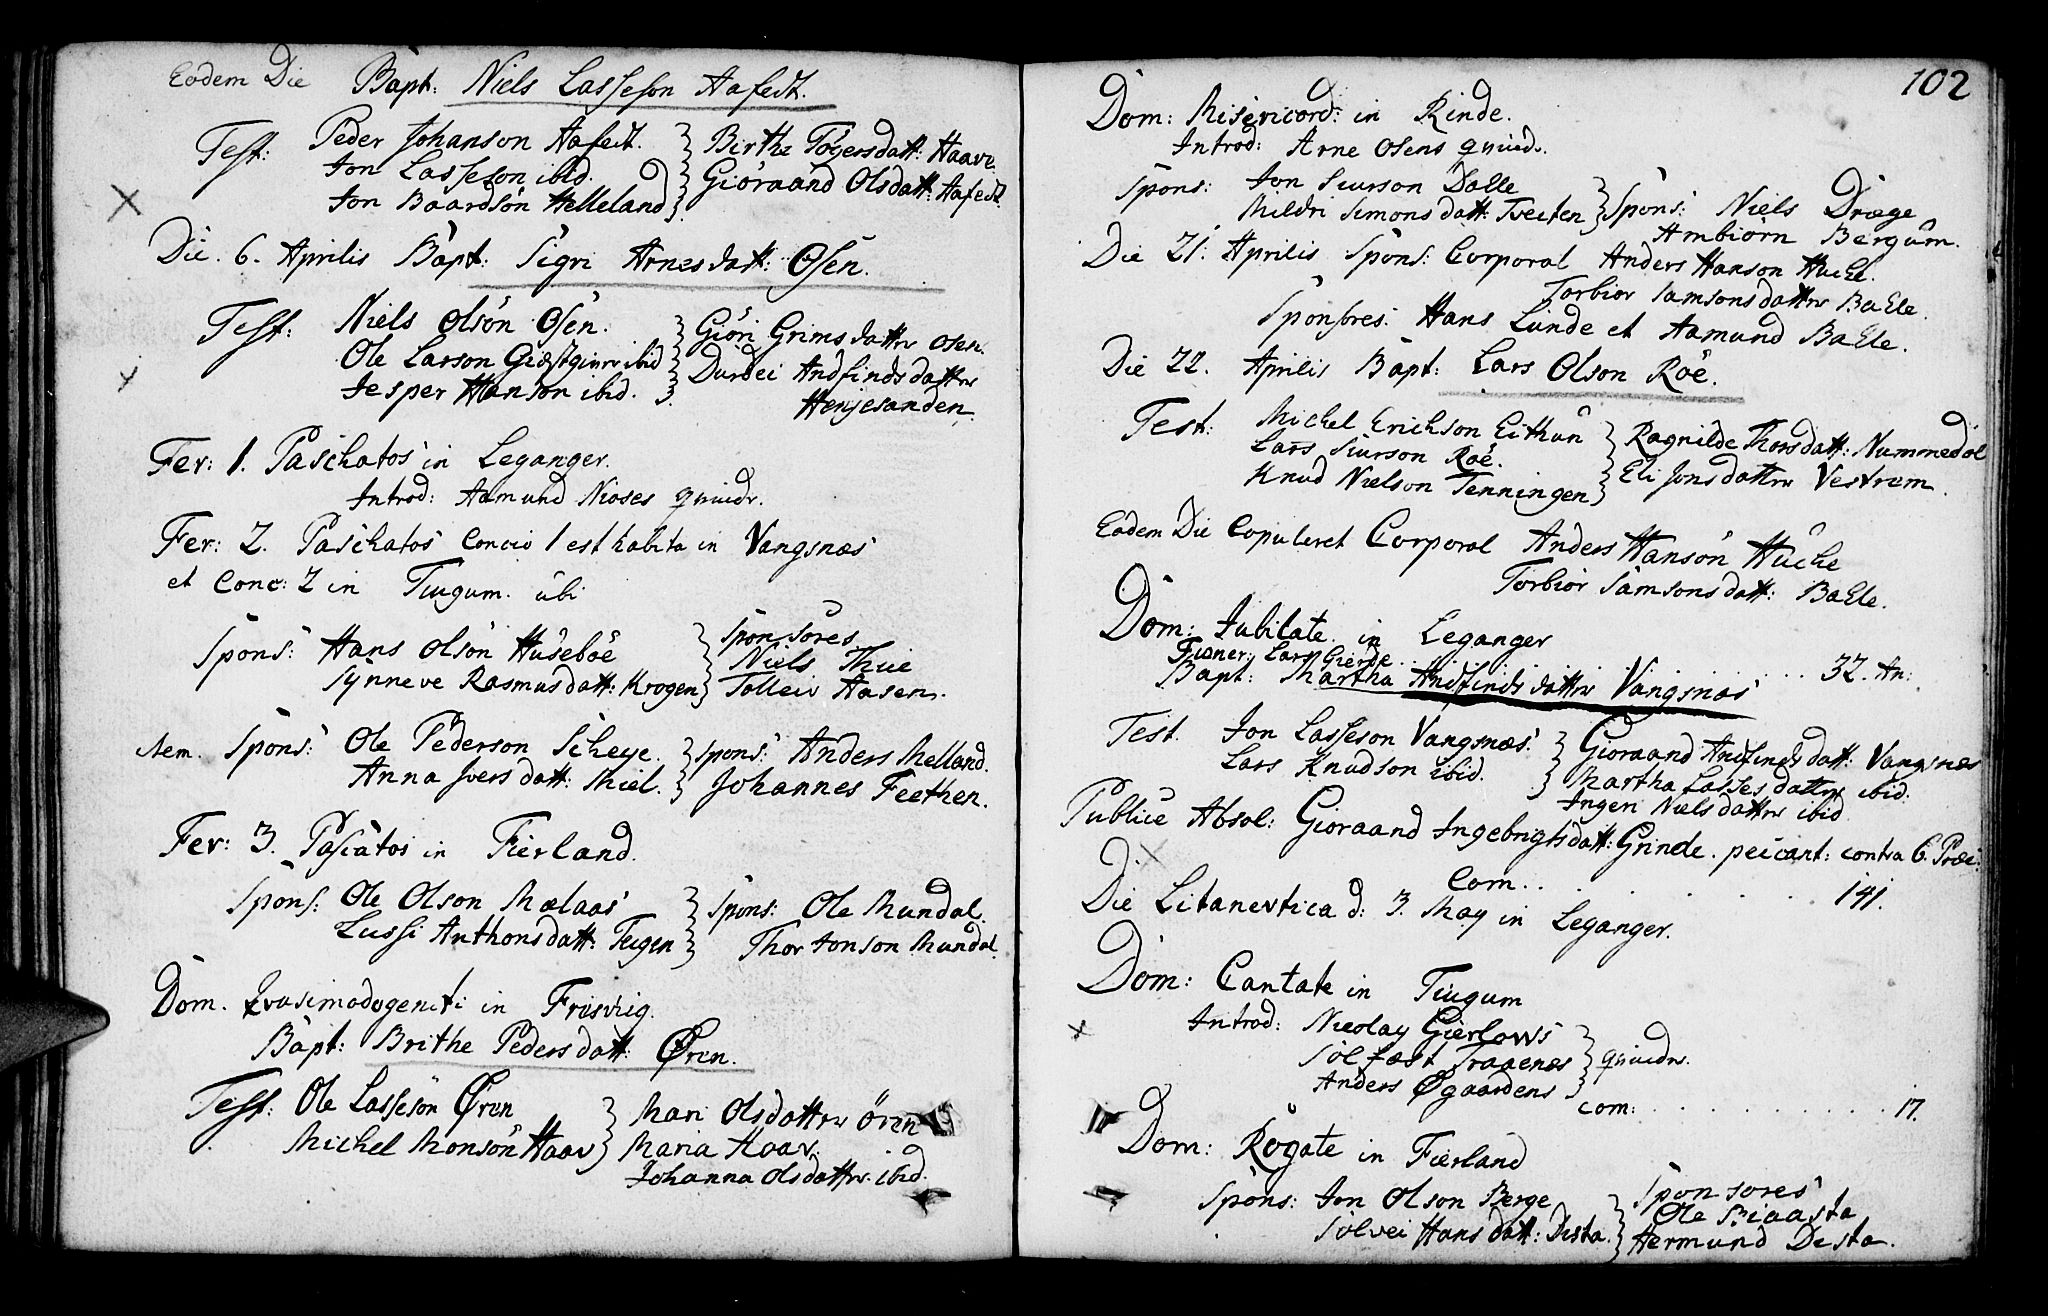 Eodem Die Bapt: Niels Lasseson Aafedt.
Test: Peder Johanson Aafedt. Birthe Togersdatt: Haave
Jon Lasseson ibid. Gioraand Olsdatt: Aafedt.
Jon Baardson Helleland
Die. 6. Aprilis Bapt: Sigri Arnesdatt: Osen.
Test: Niels Olson Osen. Giøri Grimsdattr Osen.
Ole Larson Giæstgiver ibid Durdei Andfindsdattr
Jesper Hanson ibid. Henjesanden.
Fer: 1. Paschatos in Leganger.
Introd: Aamund Nioses qvindr.
Fer: 2. Paschatos Concio 1 est habita in Vangsnæs
et Conc: 2 in Tiugum. ubi
Spons: Hans Olson Husebøe Sponsores
Synneve Rasmusdatt: Krogen Niels Thue
Tolleiv Aasen.
Item. Spons: Ole Pederson Scheye. Spons: Anders Melland.
Anna Iversdatt: Miel. Johannes Feethen.
Fer: 3. Pascatos in Fierland.
Spons: Ole Olson Mælaas Spons: Ole Mundal.
Lussi Anthonsdatt: Teigen Thor Jonson Mundal.
Dom. Qvasimodogeniti in Frisvig.
Bapt: Brithe Pedersdatt: Øren.
Test: Ole Lasseson Øren Mari Olsdattr Øren
Michel Monson Haav Maria Haav.
Johanna Olsdattr. ibid.
102
Dom: Misericord: in Rinde.
Introd: Arne Osens qvindr.
Spons: Jon Siurson Dalle Spons: Niels Dræge
Mildri Simonsdatt: Tveiten Ambiørn Bergum.
Die 21. Aprilis Spons: Corporal Anders Hanson Huche.
Torbior Samsonsdattr BaEle.
Sponsores: Hans Lunde et Aamund BaEle.
Die 22. Aprilis Bapt: Lars Olson Røe.
Test: Michel Erichson Eithun Ragnilde Thorsdatt: Nummedal
Lars Siurson Røe. Eli Jonsdattr Vestrem.
Knud Nielson Tenningen
Eodem Die Copuleret Corporal Anders Hanson Huche
Torbior Samsonsdatt: BaEle.
Dom: Jubilate in Leganger
Funer: Lars Gierde . . . . . . 32. An:
Bapt: Martha Andfindsdattr Vangsnæs
Test. Jon Lasseson Vangsnæs. Gioraand Andfindsdatt: Vangsnæs
Lars Knudson ibid. Martha Lassesdattr ibid:
Ingen Nielsdattr ibid.
Publice Absol: Gioraand Ingebrigtsdatt: Grinde. peccant: contra 6. Præc:
Com. . . . . . 141.
Die Litanevtica d: 3. May in Leganger.
Dom: Cantate in Tiugum
Introd: Nicolay Gierlows
Solfæst Traaenes qvindr.
Anders Øgaardens
Com: . . . . . . 17.
Dom: Rogate in Fierland
Spons: Jon Olson Berge Sponsores
Solvei Hansdatt: Distad. Ole Biaasta
Hermund Desta.